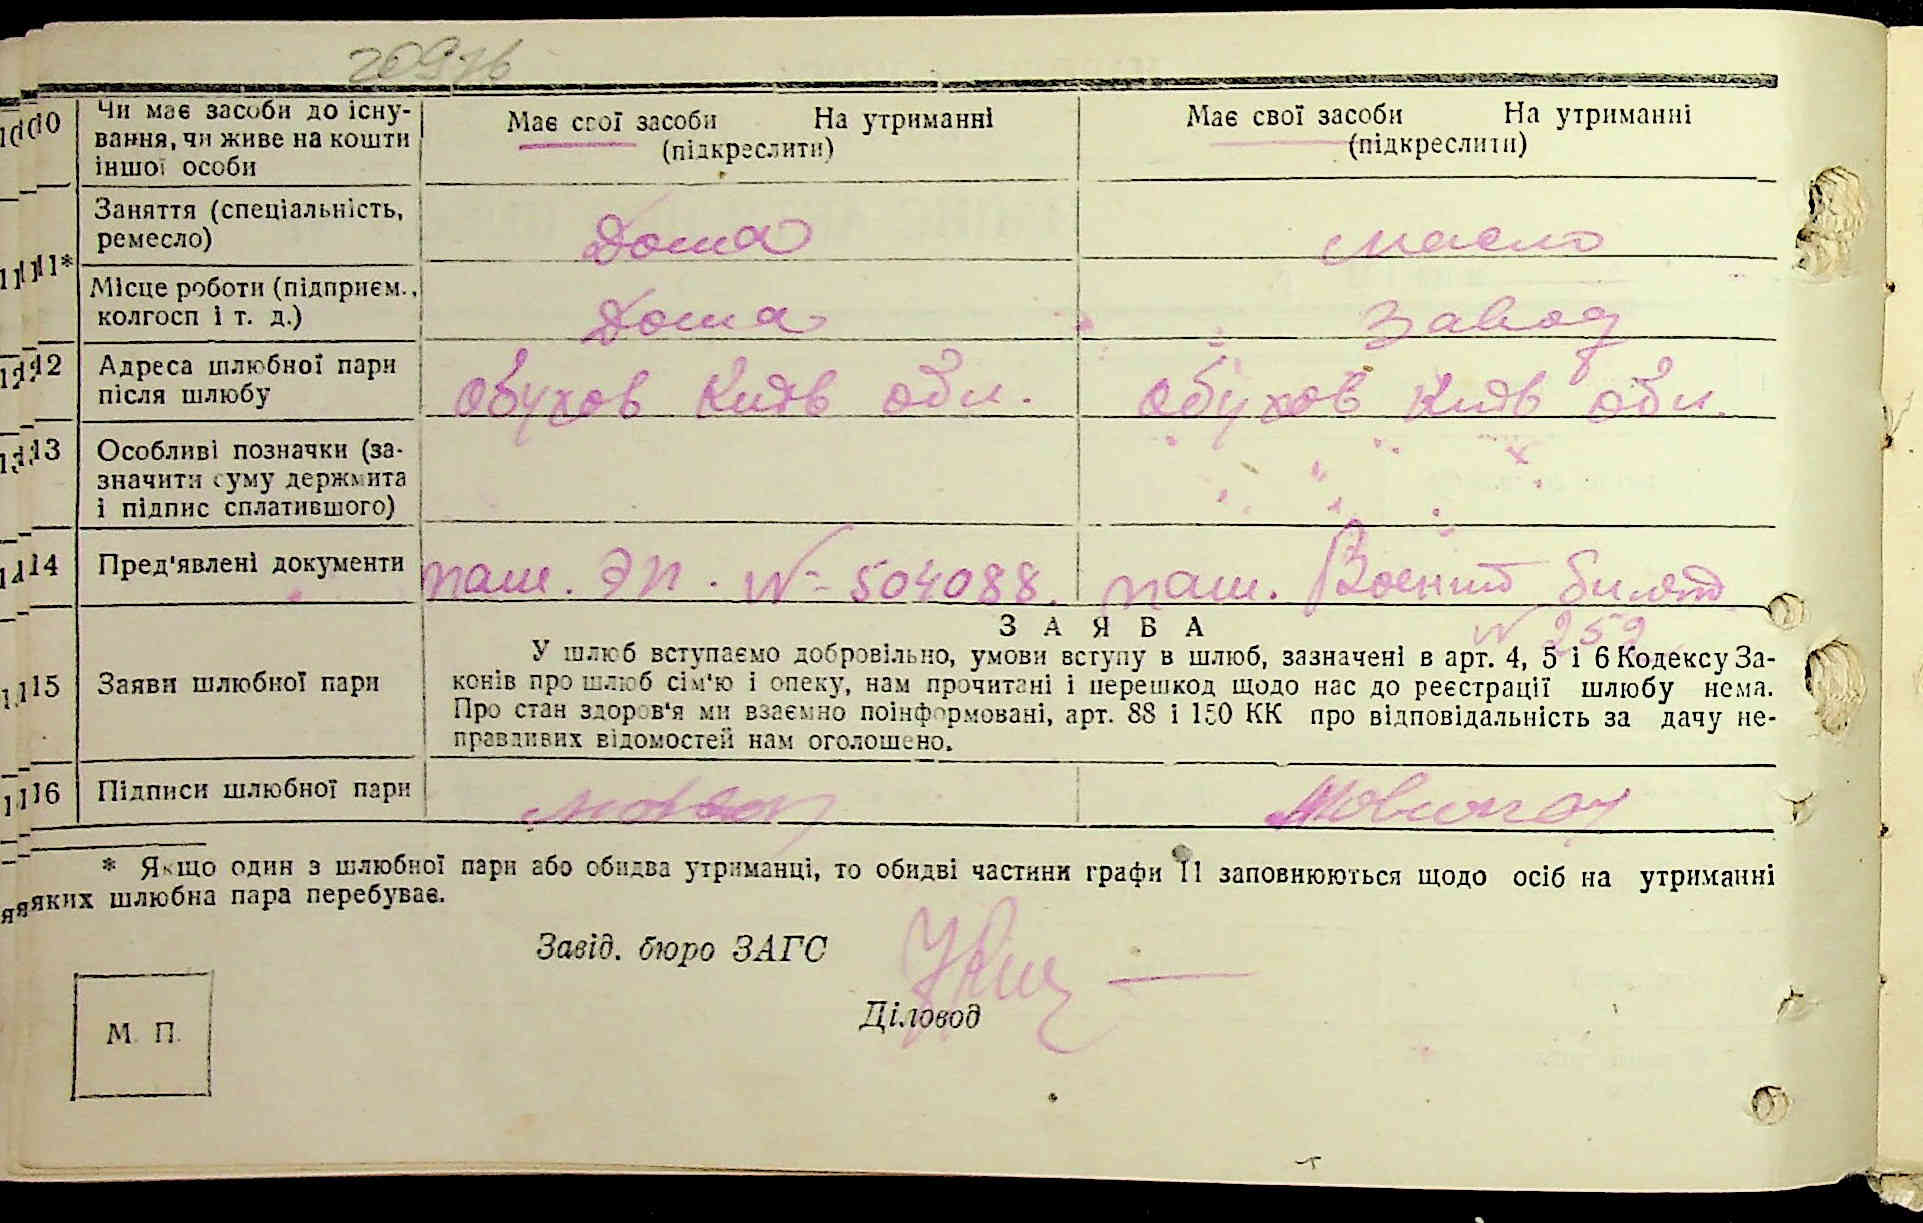 10 Чи має засоби до існу-
вання, чи живе на кошти
іншої особи
Має свої засоби На утриманні
(підкреслити)
Має свої засоби На утриманні
(підкреслити)
11* Заняття (спеціальність,
ремесло)
Дома
масло
Місце роботи (підприєм.,
колгосп і т. д.)
Дома
завод
12 Адреса шлюбної пари
після шлюбу
Обухов Київ обл.
Обухов Київ обл.
13 Особливі позначки (за-
значити суму держмита
і підпис сплатившого)
14 Пред'явлені документи
паш. ЭП. № 504088.
паш. Воений билет
№ 252
З А Я В А
15 Заяви шлюбної пари
У шлюб вступаємо добровільно, умови вступу в шлюб, зазначені в арт. 4, 5 і 6 Кодексу За-
конів про шлюб сім'ю і опеку, нам прочитані і перешкод щодо нас до реєстрації шлюбу нема.
Про стан здоров'я ми взаємно поінформовані, арт. 88 і 150 КК про відповідальність за дачу не-
правдивих відомостей нам оголошено.
16 Підписи шлюбної пари
* Якщо один з шлюбної пари або обидва утриманці, то обидві частини графи 11 заповнюються щодо осіб на утриманні
яких шлюбна пара перебуває.
Завід. бюро ЗАГС
Діловод
М. П.